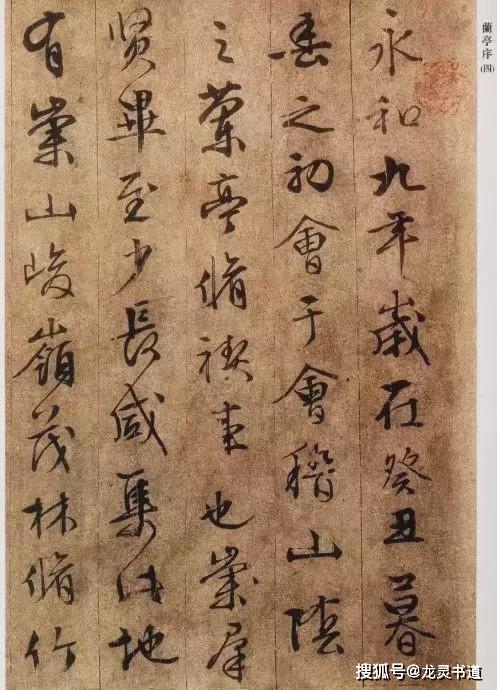 蘭亭序(四)
永和九年歲在癸丑暮
春之初會于會稽山陰
之蘭亭脩禊事也崇羣
賢畢至少長咸集此地
有崇山峻嶺茂林脩竹
搜狐号@龙灵书道